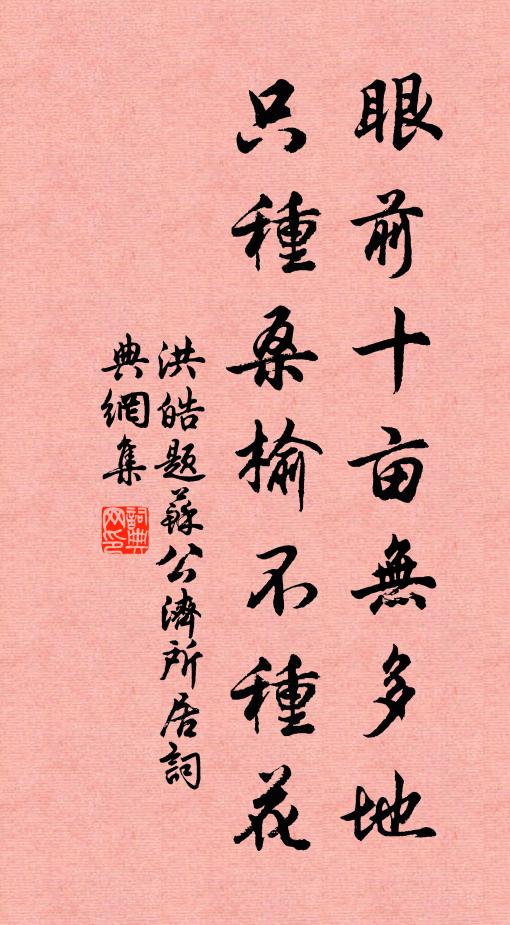 眼前十亩無多地
只種桑榆不種花
洪皓題蘇公濟所居詞
典網集
詞典
网印